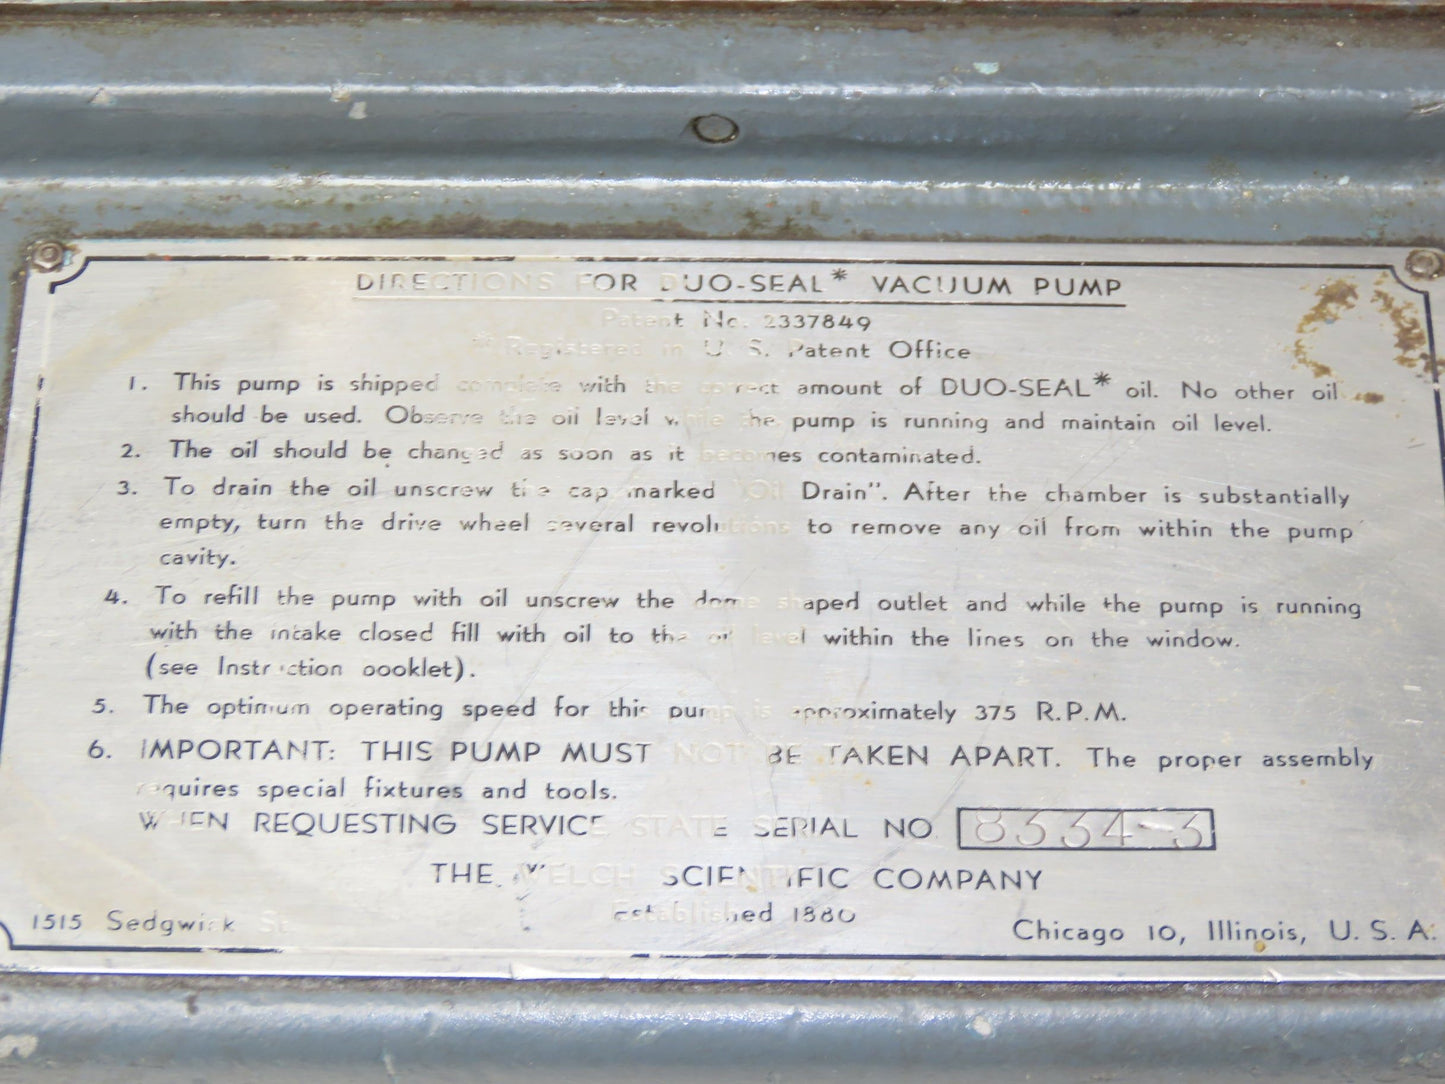 DIRECTIONS FOR DUO-SEAL* VACUUM PUMP
Patent No. 2337849
* Registered in U. S. Patent Office
1. This pump is shipped complete with the correct amount of DUO-SEAL* oil. No other oil
should be used. Observe the oil level while the pump is running and maintain oil level.
2. The oil should be changed as soon as it becomes contaminated.
3. To drain the oil unscrew the cap marked "Oil Drain". After the chamber is substantially
empty, turn the drive wheel several revolutions to remove any oil from within the pump
cavity.
4. To refill the pump with oil unscrew the dome shaped outlet and while the pump is running
with the intake closed fill with oil to the oil level within the lines on the window.
(see Instruction booklet).
5. The optimum operating speed for this pump is approximately 375 R.P.M.
6. IMPORTANT: THIS PUMP MUST NOT BE TAKEN APART. The proper assembly
requires special fixtures and tools.
WHEN REQUESTING SERVICE STATE SERIAL NO. 8334-3
THE WELCH SCIENTIFIC COMPANY
Established 1880
1515 Sedgwick St. Chicago 10, Illinois, U. S. A.